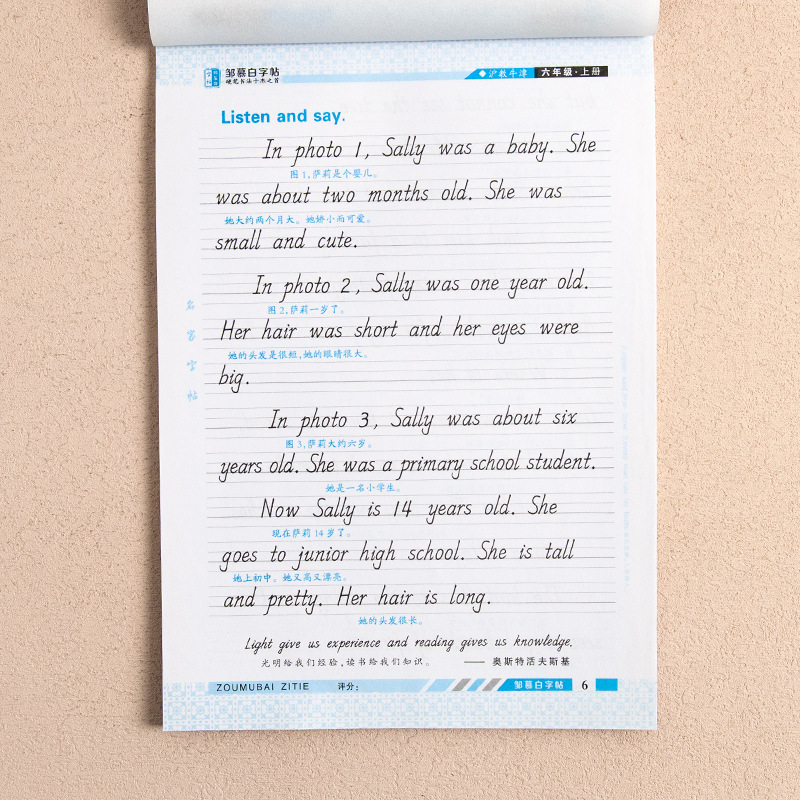 邹慕白字帖
硬笔书法十杰之首
沪教牛津
六年级·上册
Listen and say.
In photo 1, Sally was a baby. She
图1,萨莉是个婴儿。
was about two months old. She was
她大约两个月大。她娇小而可爱。
small and cute.
In photo 2, Sally was one year old.
图2,萨莉一岁了。
Her hair was short and her eyes were
她的头发是很短,她的眼睛很大。
big.
名家字帖
In photo 3, Sally was about six
图3,萨莉大约六岁。
years old. She was a primary school student.
她是一名小学生。
Now Sally is 14 years old. She
现在萨莉14岁了。
goes to junior high school. She is tall
她上初中。她又高又漂亮。
and pretty. Her hair is long.
她的头发很长。
Light give us experience and reading gives us knowledge.
光明给我们经验,读书给我们知识。 —— 奥斯特活夫斯基
ZOUMUBAI ZITIE 评分: 邹慕白字帖 6